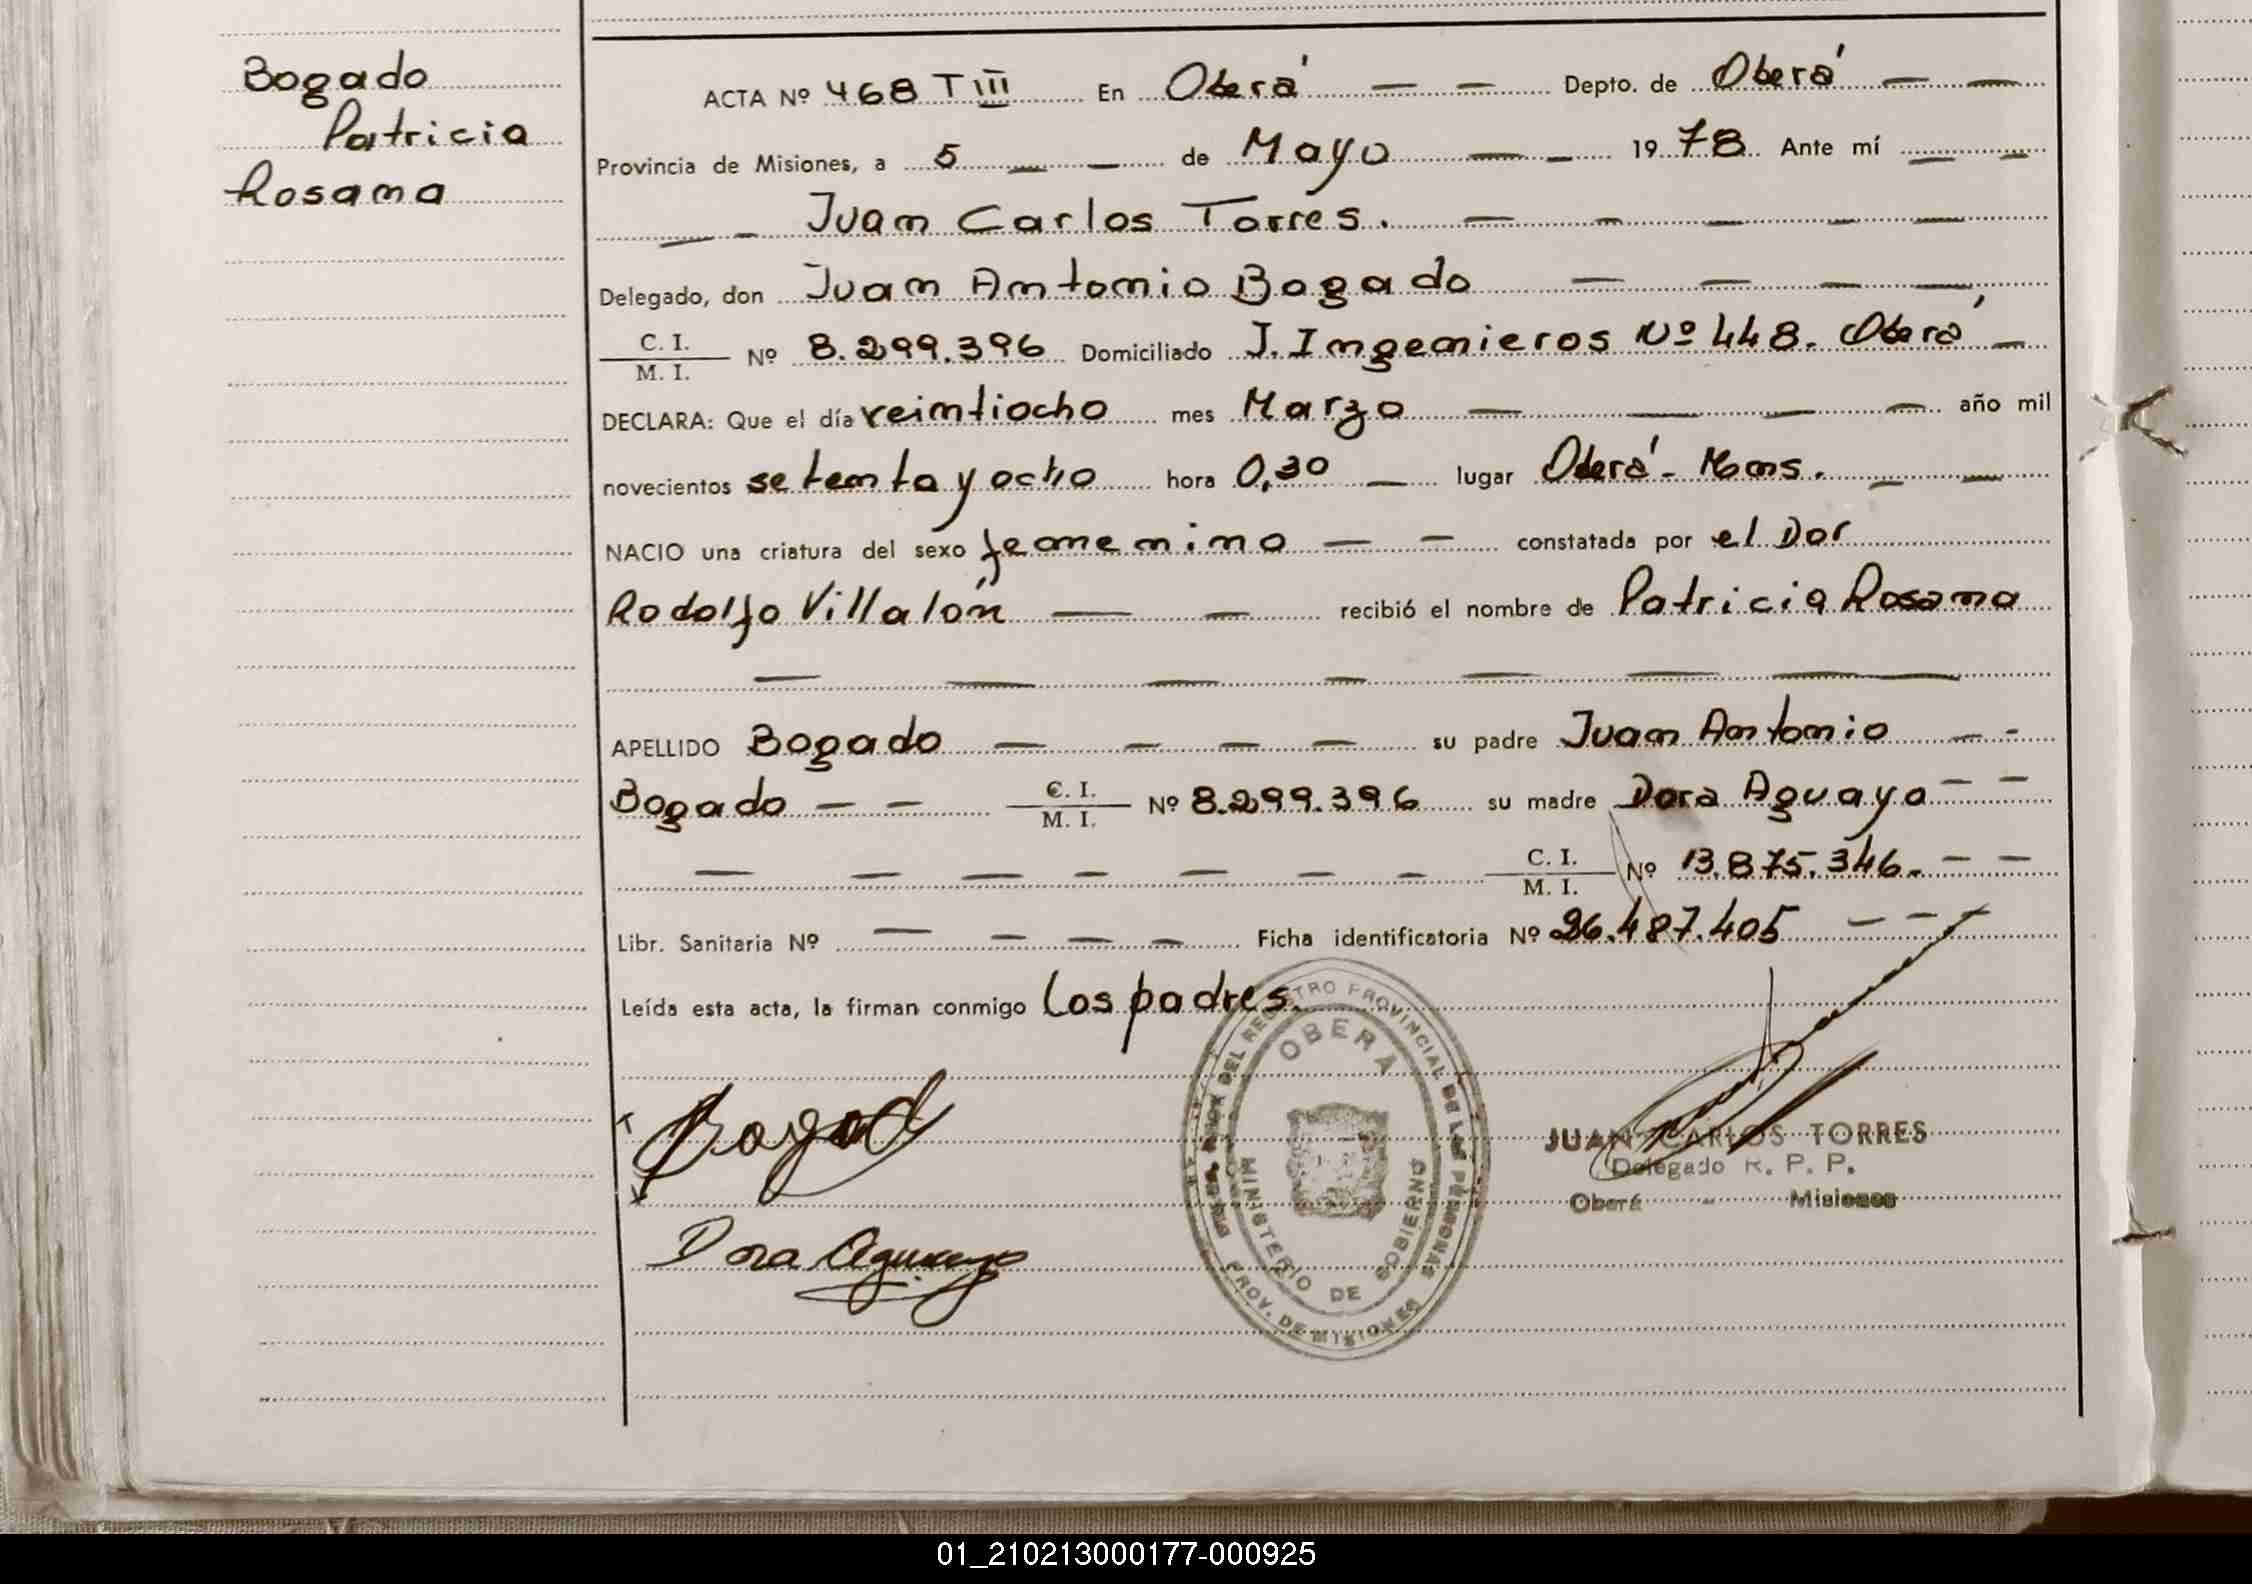 Bogado
Patricia
Rosana
ACTA Nº 468 T III En Oberá Depto. de Oberá
Provincia de Misiones, a 5 de Mayo 1978 Ante mí
Juan Carlos Torres.
Delegado, don Juan Antonio Bogado
C. I.
M. I.
Nº 8.299.396 Domiciliado J. Ingenieros Nº 448. Oberá
DECLARA: Que el día veintiocho mes Marzo año mil
novecientos setenta y ocho hora 0,30 lugar Oberá - Mnes.
NACIO una criatura del sexo femenino constatada por el Dor
Rodolfo Villalón recibió el nombre de Patricia Rosana
APELLIDO Bogado su padre Juan Antonio
Bogado C. I. / M. I. Nº 8.299.396 su madre Dora Aguayo
C. I. / M. I. Nº 13.875.346.
Libr. Sanitaria Nº Ficha identificatoria Nº 26.487.405
Leída esta acta, la firman conmigo los padres.
Bogado
Dora Aguayo
DEL REGISTRO PROVINCIAL DE LAS PERSONAS
OBERÁ
MINISTERIO DE GOBIERNO
PROV. DE MISIONES
JUAN CARLOS TORRES
Delegado R. P. P.
Oberá - Misiones
01_210213000177-000925